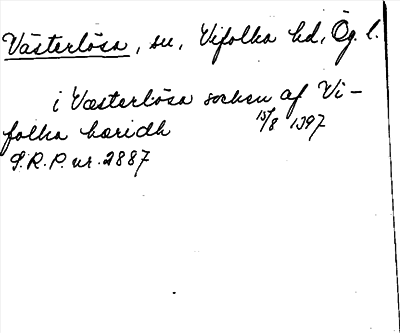 Västerlösa, sn, Vifolka hd, Ög. l.
i Væsterlösa soken af Vi-
folka hæridh 15/8 1397
S.R.P. nr. 2887